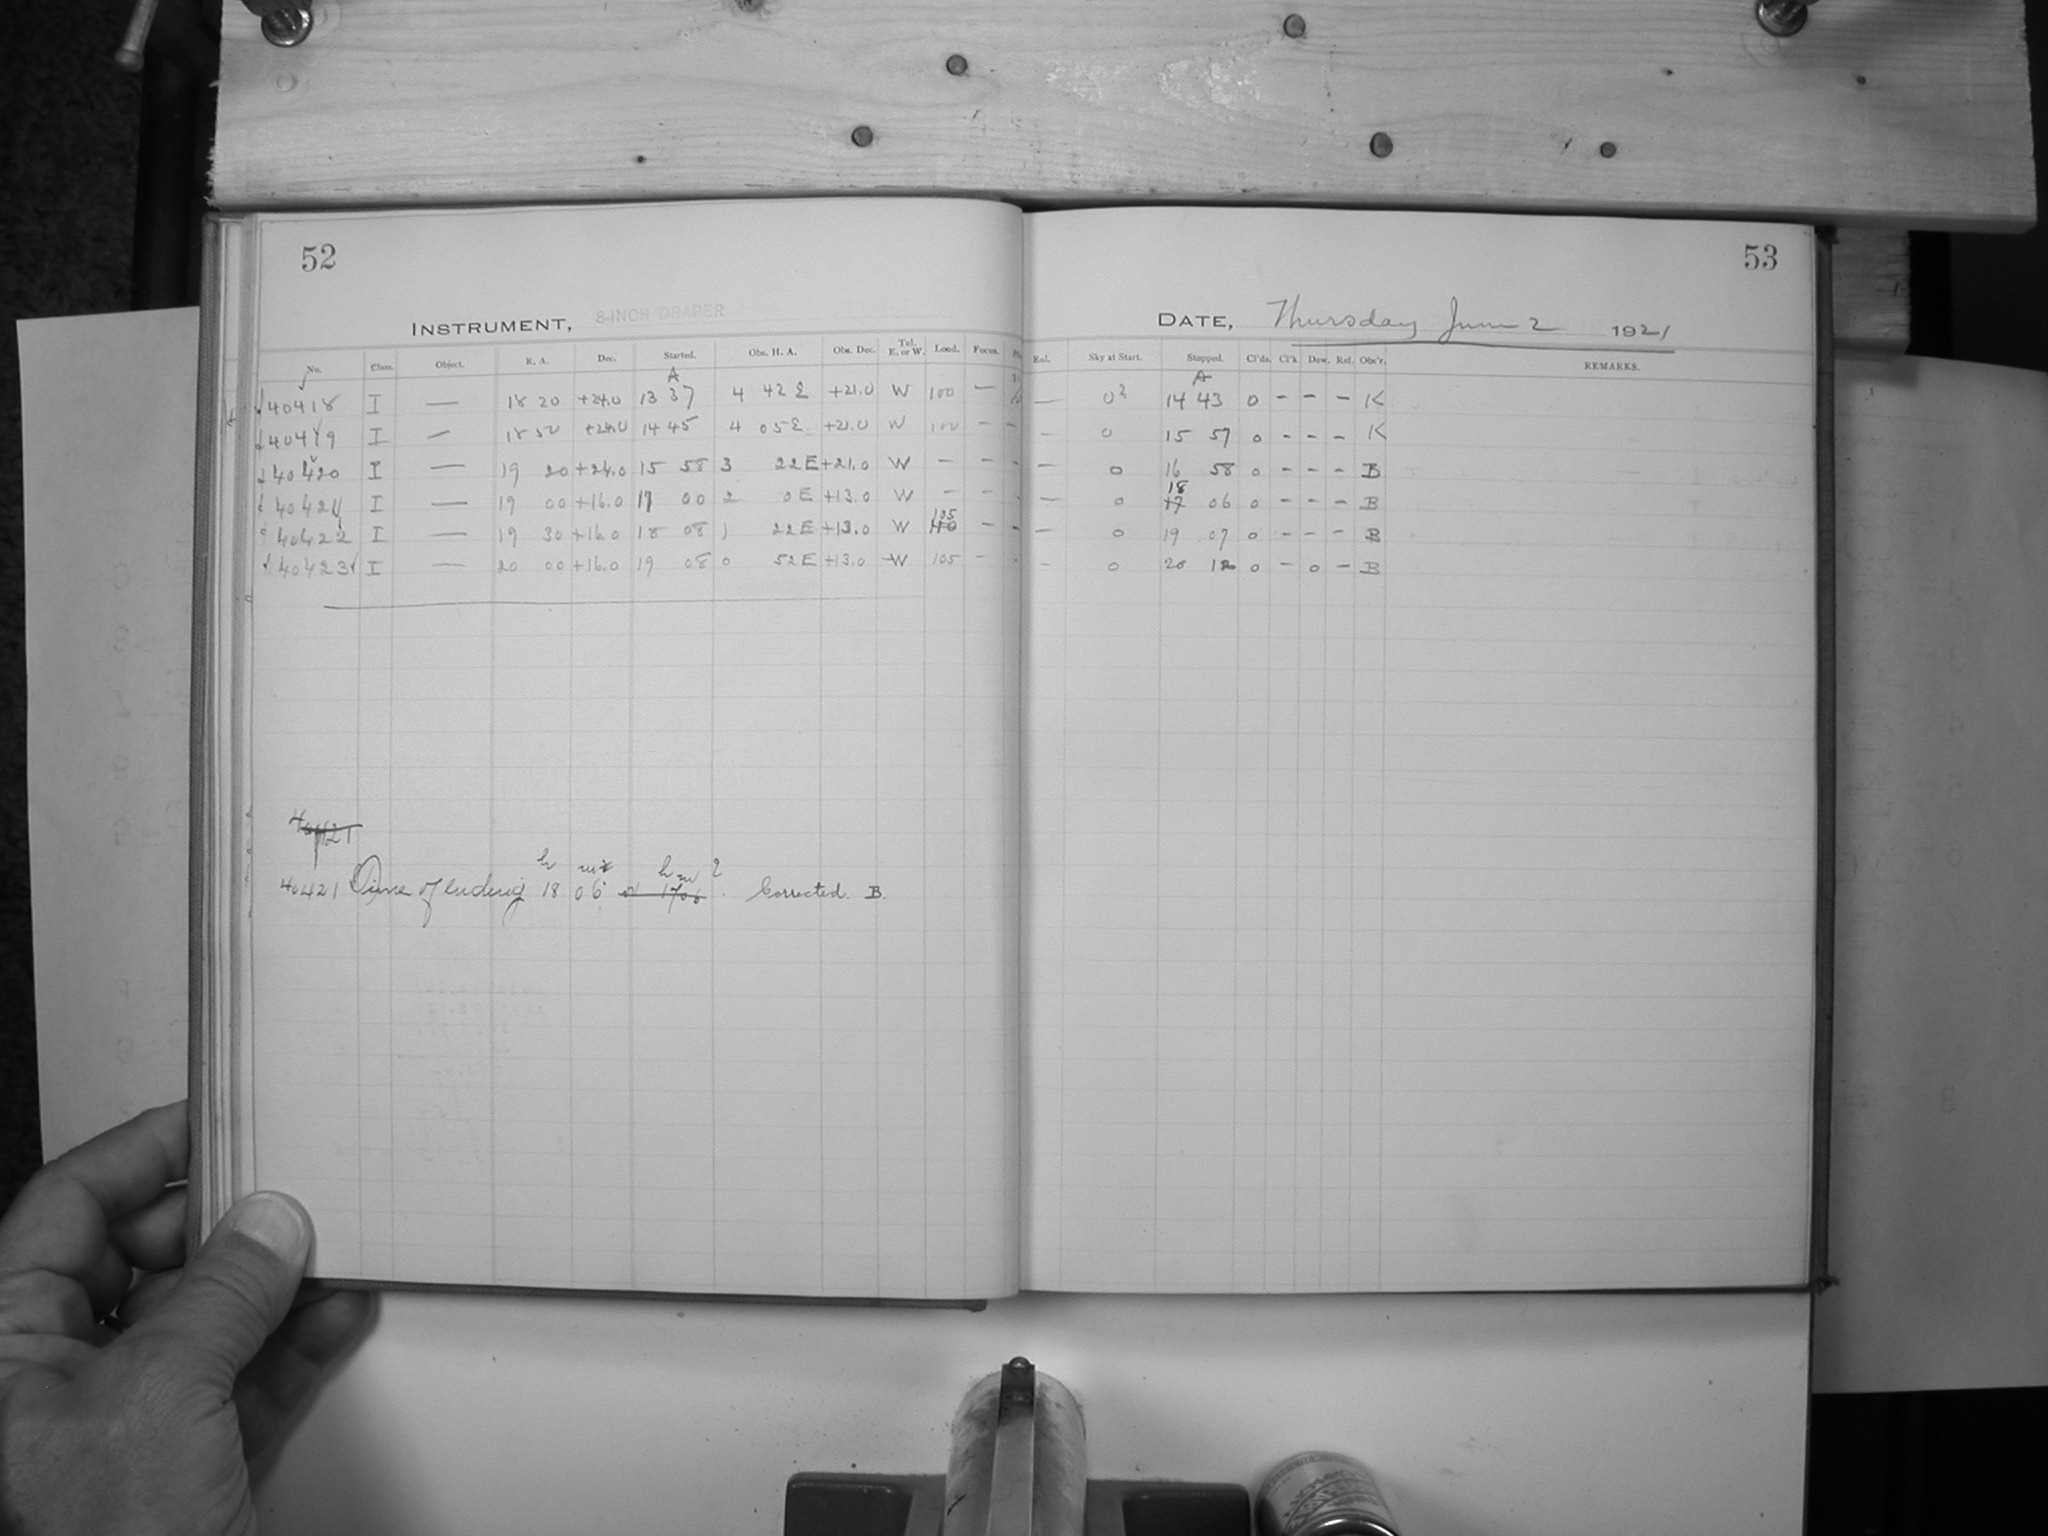 52
53
INSTRUMENT, 8-INCH DRAPER
DATE, Thursday June 2 1921
No. Class. Object. R. A. Dec. Started. Obs. H. A. Obs. Dec. Tel. E. or W. Load. Focus.
Enl. Sky at Start. Stopped. Cl'ds. Cl'k Dew. Ref. Obs'r. REMARKS.
A
A
40418 I — 18 20 +24.0 13 37 4 42 E +21.0 W 100 — — 0² 14 43 0 - - - K
40419 I — 18 50 +24.0 14 45 4 05 E +21.0 W 100 - - - 0 15 57 0 - - - K
40420 I — 19 20 +24.0 15 58 3 22 E +21.0 W - - — 0 16 58 0 - - - B
40421 I — 19 00 +16.0 17 00 2 0 E +13.0 W - - - — 0 18 17 06 0 - - - B
40422 I — 19 30 +16.0 18 08 1 22 E +13.0 W 105 - - — 0 19 07 0 - - - B
40423 I — 20 00 +16.0 19 08 0 52 E +13.0 W 105 - - - 0 20 12 0 - 0 - B
40421
h m h m ?
40421 Time of ending 18 06 or 1706. Corrected. B.